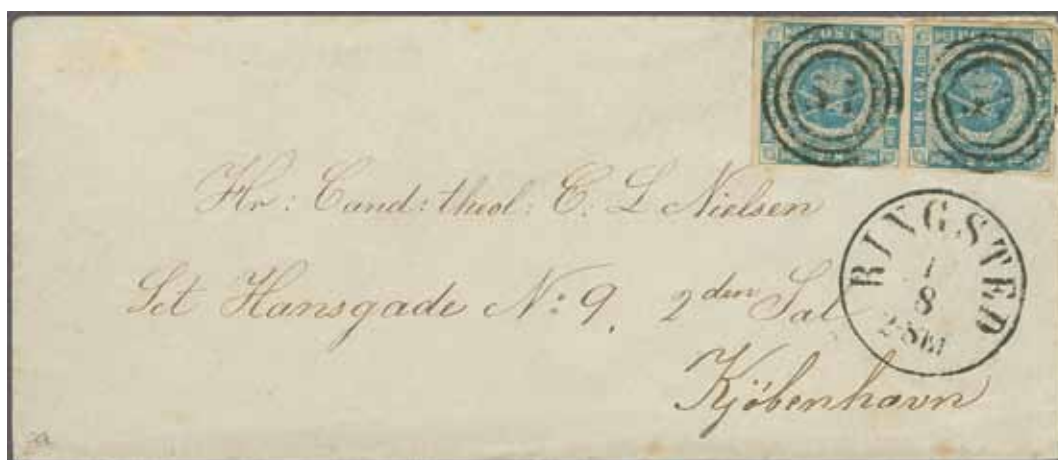 Hr: Cand: theol: C. L. Nielsen
Sct Hansgade No: 9, 2den Sal
Kjöbenhavn
RINGSTED
1
8